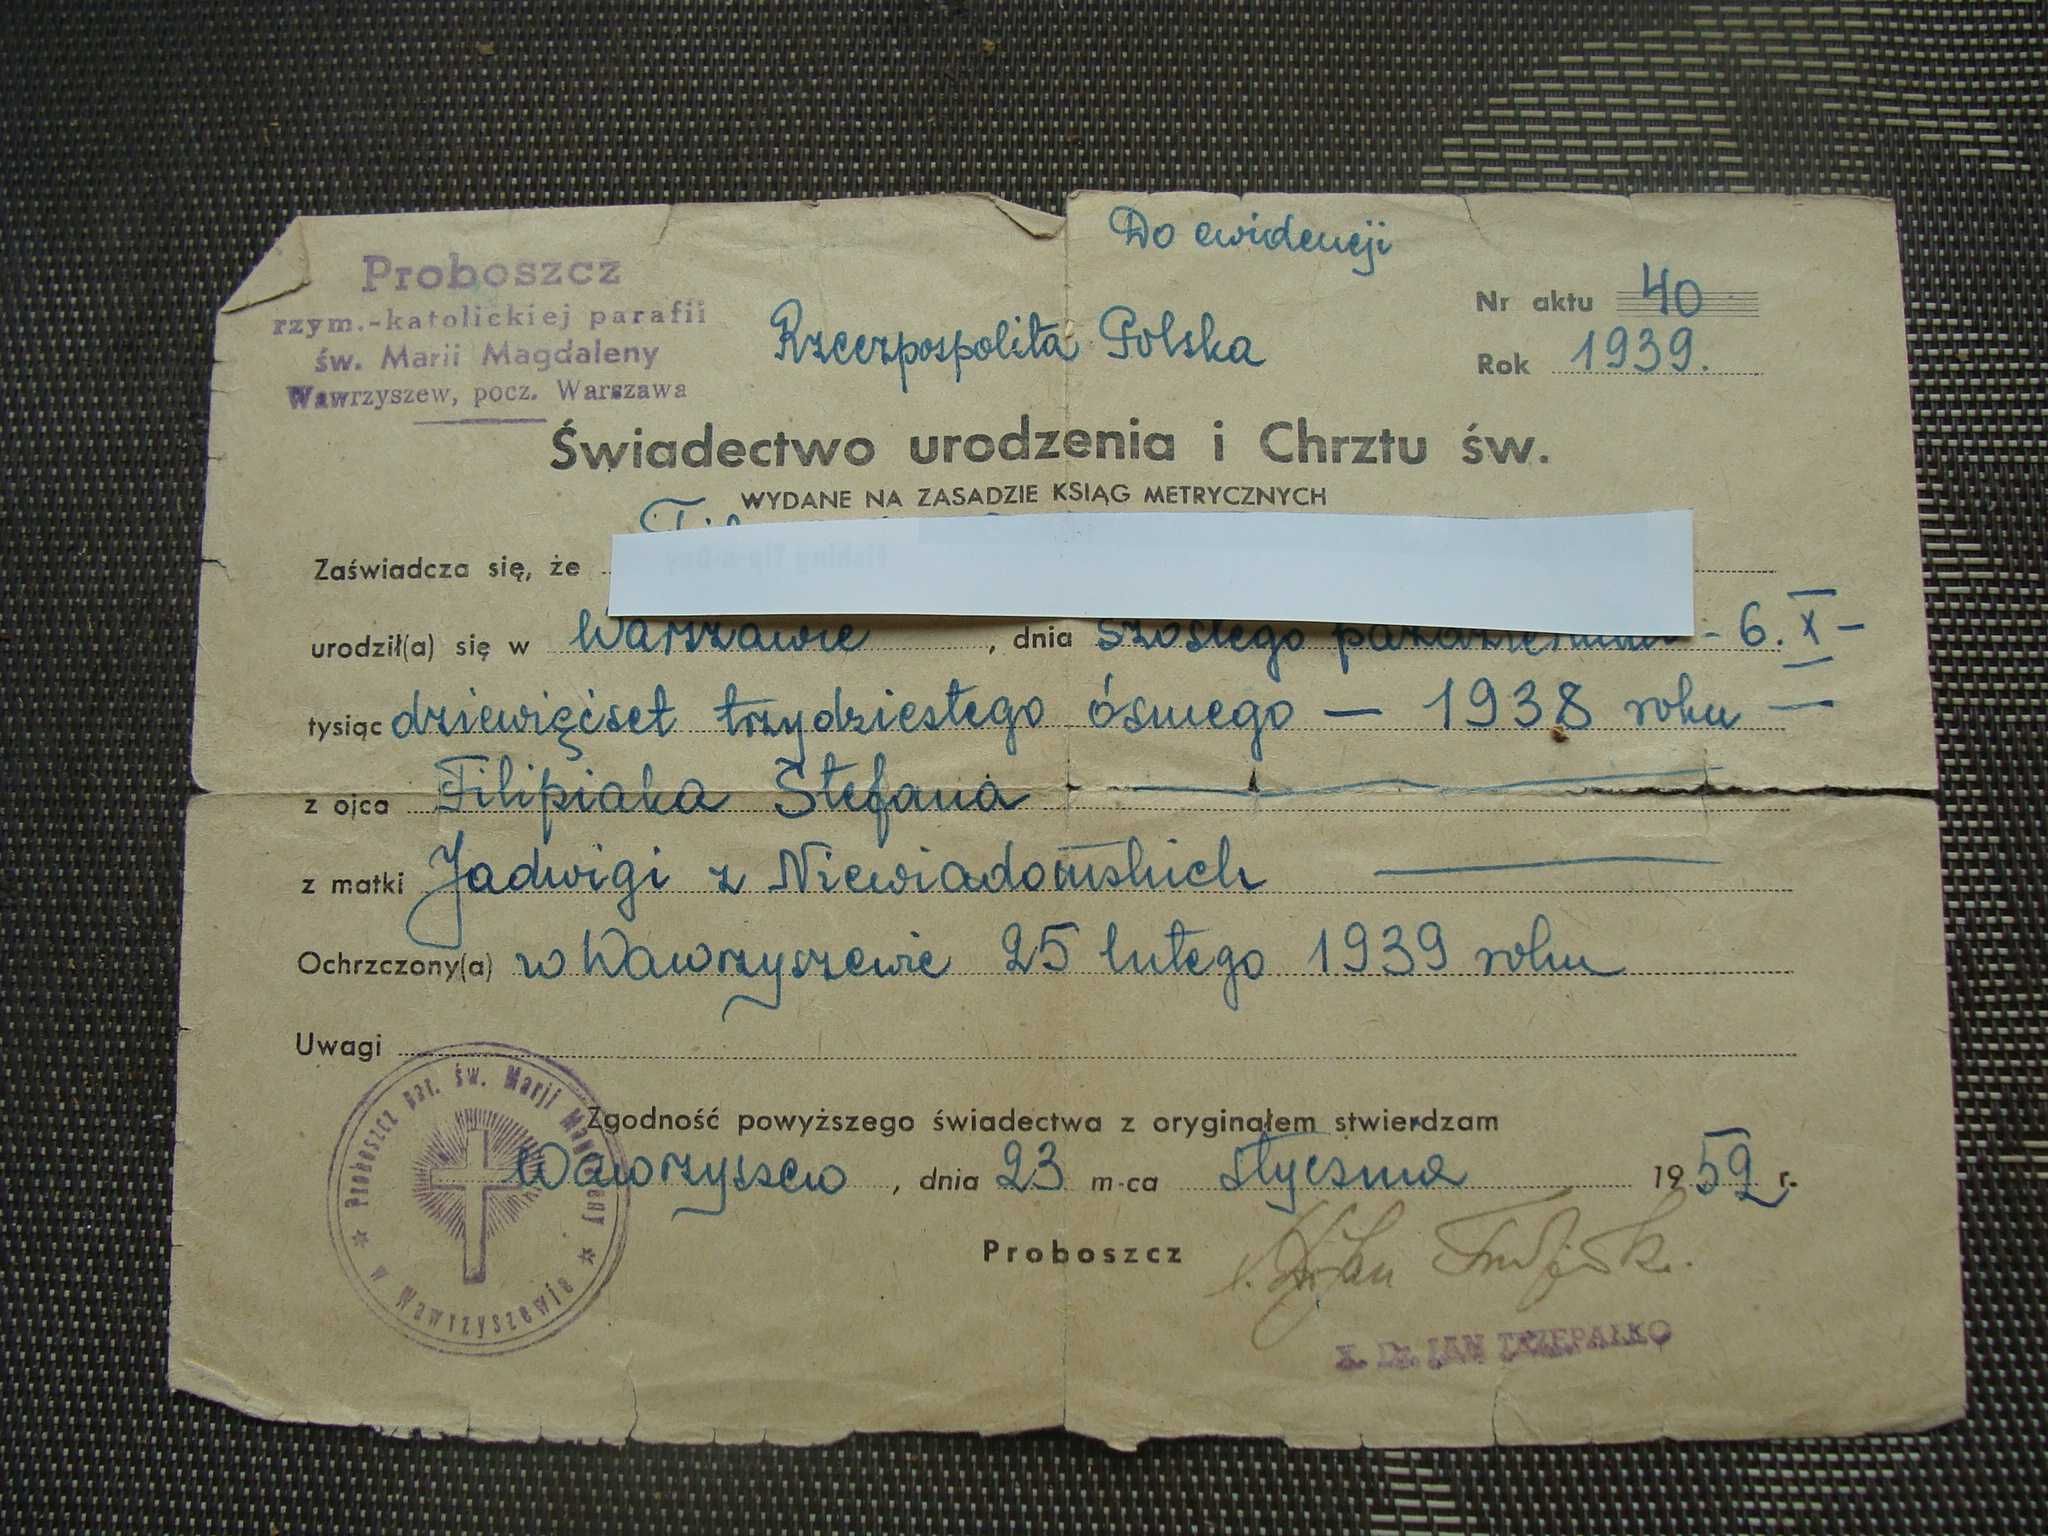 Do ewidencji
Proboszcz
rzym.-katolickiej parafii
św. Marii Magdaleny
Wawrzyszew, pocz. Warszawa
Rzeczpospolita Polska
Nr aktu 40
Rok 1939.
Świadectwo urodzenia i Chrztu św.
WYDANE NA ZASADZIE KSIĄG METRYCZNYCH
Zaświadcza się, że
urodził(a) się w Warszawie, dnia szóstego października - 6. X -
tysiąc dziewięćset trzydziestego ósmego — 1938 roku —
z ojca Filipiaka Stefana
z matki Jadwigi z Niewiadomskich
Ochrzczony(a) w Wawrzyszewie 25 lutego 1939 roku
Uwagi
Zgodność powyższego świadectwa z oryginałem stwierdzam
Wawrzyszew, dnia 23 m-ca stycznia 1952 r.
Proboszcz
X. Dr. JAN TRZEPAŁKO
Proboszcz Par. św. Marji Magdaleny
w Wawrzyszewie